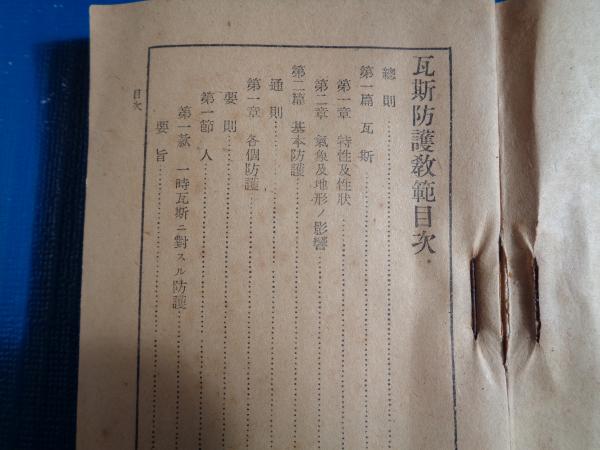 瓦斯防護敎範目次
總則
第一篇 瓦斯
第一章 特性及性狀
第二章 氣象及地形ノ影響
第二篇 基本防護
通則
第一章 各個防護
要則
第一節 人
第一款 一時瓦斯ニ對スル防護
要旨
目次